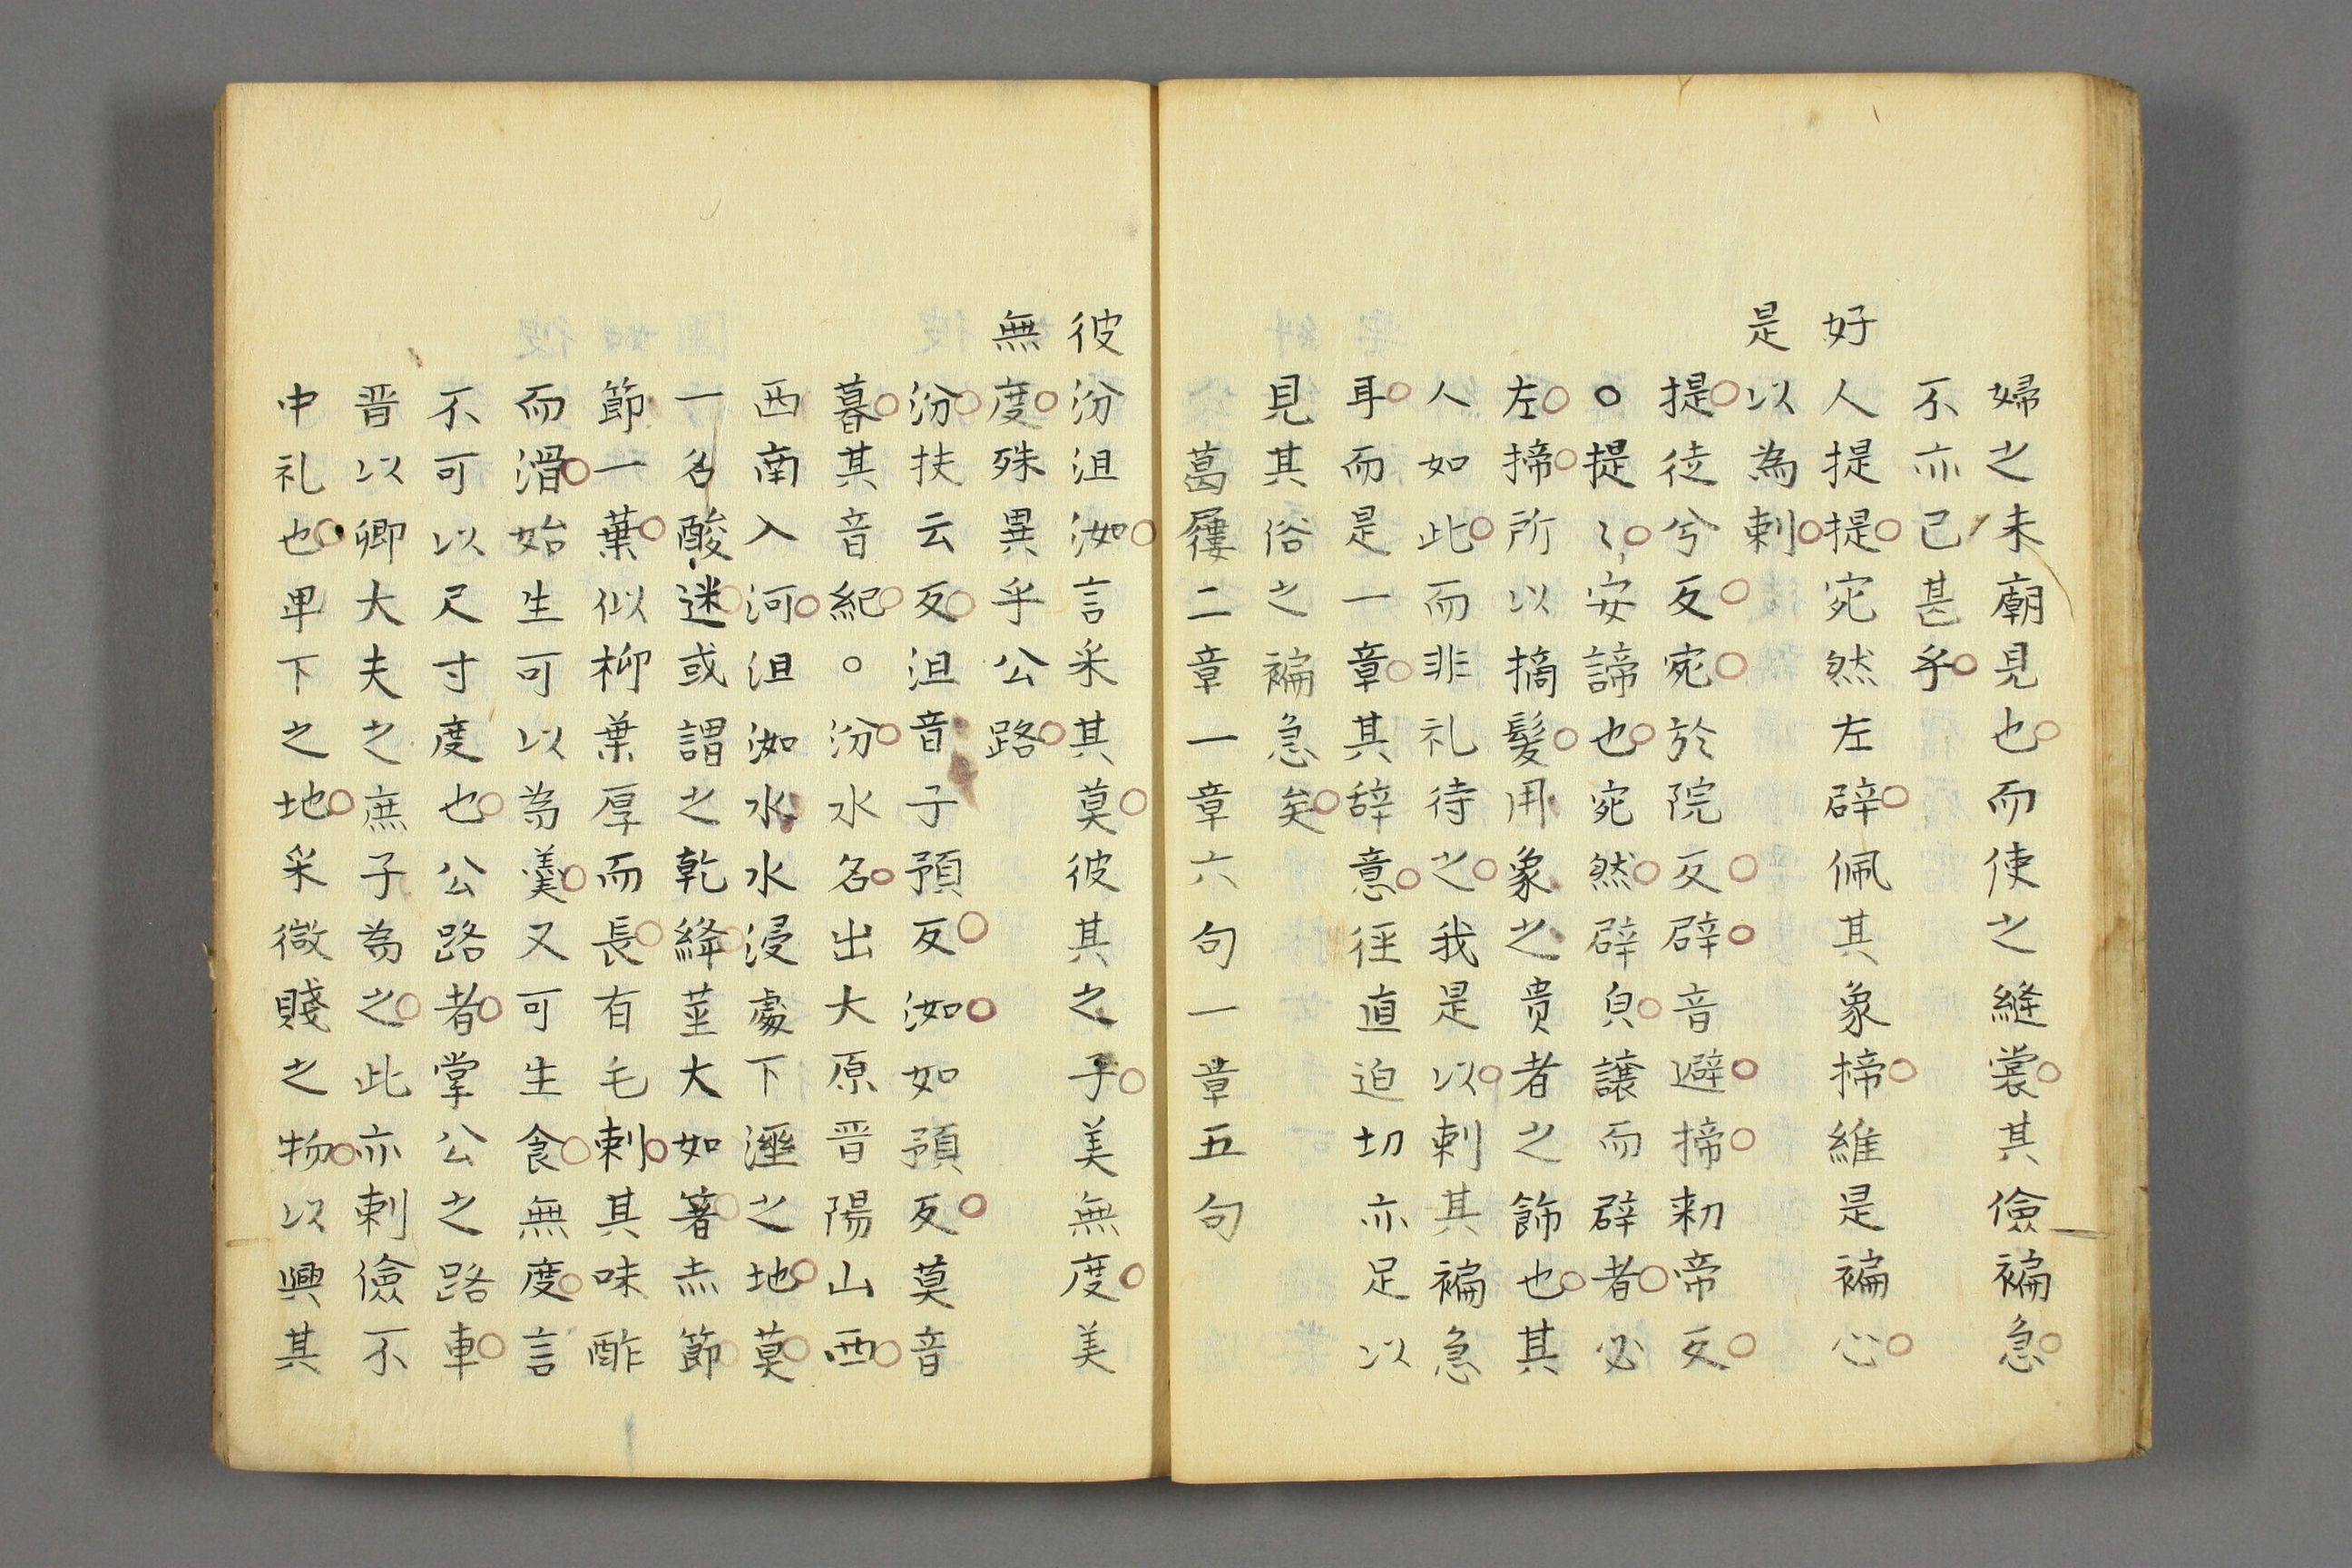 婦之未廟見也而使之縫裳其儉褊急
不亦已甚乎
好人提提宛然左辟佩其象揥維是褊心
是以為刺
提徒兮反宛於院反辟音避揥勑帝反
○提〻安諦也宛然辟皃讓而辟者必
左揥所以摘髮用象之貴者之飾也其
人如此而非礼待之我是以刺其褊急
耳而是一章其辞意徑直迫切亦足以
見其俗之褊急矣
葛屨二章一章六句一章五句
彼汾沮洳言采其莫彼其之子美無度美
無度殊異乎公路
汾扶云反沮音子預反洳如預反莫音
暮其音紀○汾水名出大原晋陽山西
西南入河沮洳水水浸處下溼之地莫
一名酸迷或謂之乾絳莖大如箸赤節
節一葉似柳葉厚而長有毛刺其味酢
而滑始生可以為羹又可生食無度言
不可以尺寸度也公路者掌公之路車
晋以卿大夫之庶子為之此亦刺儉不
中礼也卑下之地采微賤之物以興其